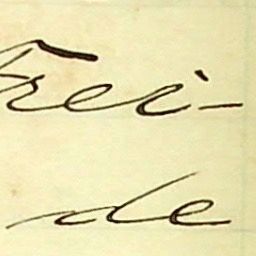 Frei-
de